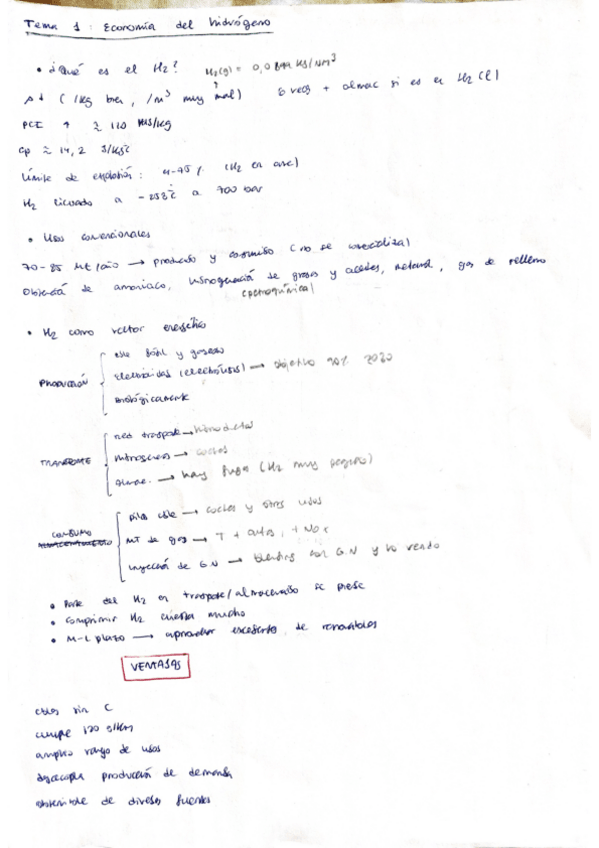 Tema 1: Economía del hidrógeno
• ¿Qué es el H2? H2(g) = 0,0899 kg/Nm³
ρ↓ (/kg bien, /m³ muy mal) 6 veces + almac si es en H2 (l)
PCI ↑ ≈ 120 MJ/kg
Cp ≈ 14,2 J/kgºC
Límite de explosión: 4-75 % (H2 en aire)
H2 licuado a -253ºC a 700 bar
• Usos convencionales
70-85 Mt/año → producto y consumo (no se comercializa)
Obtenció de amoniaco, hidrogenació de grasas y aceites, metanol, gas de relleno
(petroquímica)
• H2 como vector energético
PRODUCCIÓN
cble fósil y gaseoso
electricidad (electrólisis) → objetivo 90% 2030
biológicamente
TRANSPORTE
red transporte → hidroductos
hidrogenera → coches
almac. → hay fuga (H2 muy pequeño)
CONSUMO
pilas cble → coches y otros usos
MT de gas → T + altas, + NOx
inyección de G.N → blending con G.N y lo vendo
• Parte del H2 en transporte/almacenado se pierde
• Comprimir H2 cuesta mucho
• M-L plazo → aprovechar excedente de renovables
VENTAJAS
cbles sin C
cumple 120 g/km
amplio rango de usos
desacopla producción de demanda
obtenible de diversas fuentes